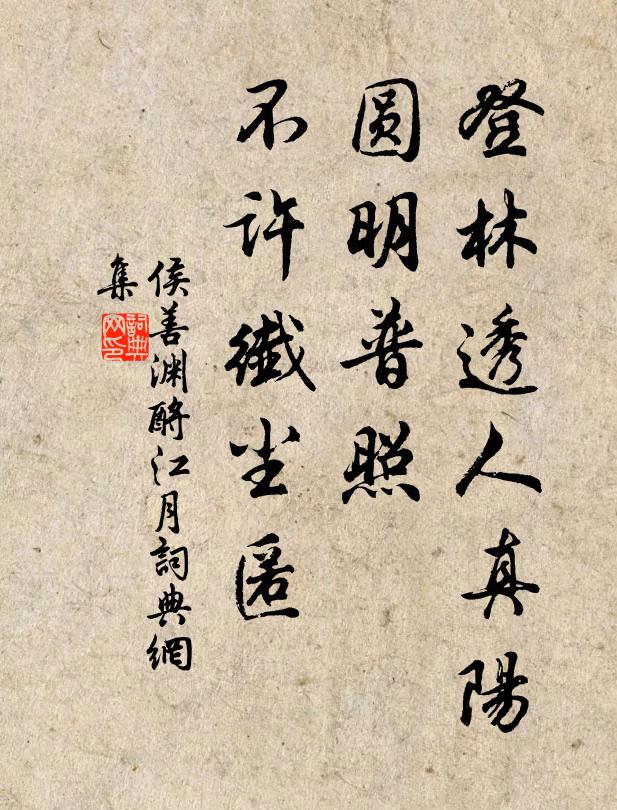 登林透人真陽
圓明普照
不許纖尘匿
侯善渊酹江月詞典網
集
詞典
网印